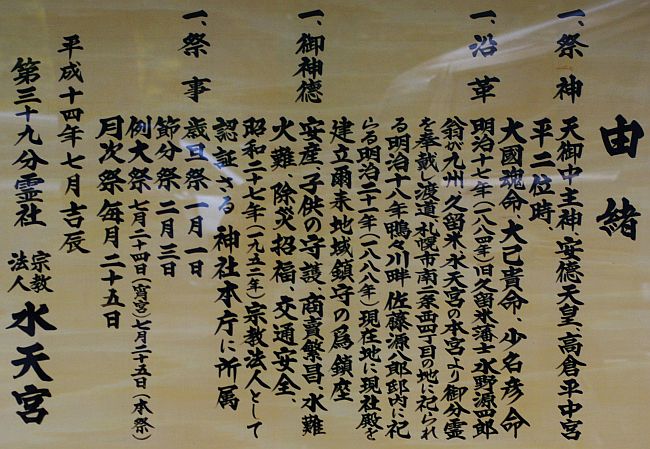 由緒
一、祭神 天御中主神、安徳天皇、高倉平中宮
平二位時、
大國魂命、大己貴命、少名彦命
一、沿革 明治十七年(一八八四年)旧久留米藩士水野源四郎
翁が九州、久留米水天宮の本宮より御分霊
を奉戴し渡道、札幌市南一条西四丁目の地に祀られ
る明治十八年鴨々川畔 佐藤源八郎邸内に祀
らる明治二十一年(一八八八年)現在地に現社殿を
建立爾来地域鎮守の為鎮座
一、御神徳 安産、子供の守護、商売繁昌、水難
火難、除災招福、交通安全
昭和二十七年(一九五二年)宗教法人として
認証さる 神社本庁に所属
一、祭事 歳旦祭 一月一日
節分祭 二月三日
例大祭 七月二十四日(宵宮)七月二十五日(本祭)
月次祭 毎月二十五日
平成十四年七月吉辰
第三十九分霊社 宗教法人 水天宮